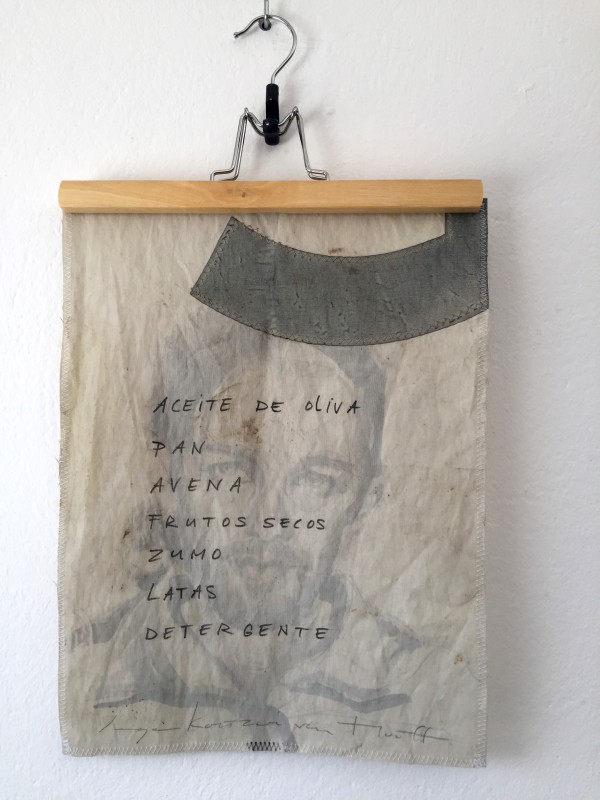 ACEITE DE OLIVA
PAN
AVENA
FRUTOS SECOS
ZUMO
LATAS
DETERGENTE